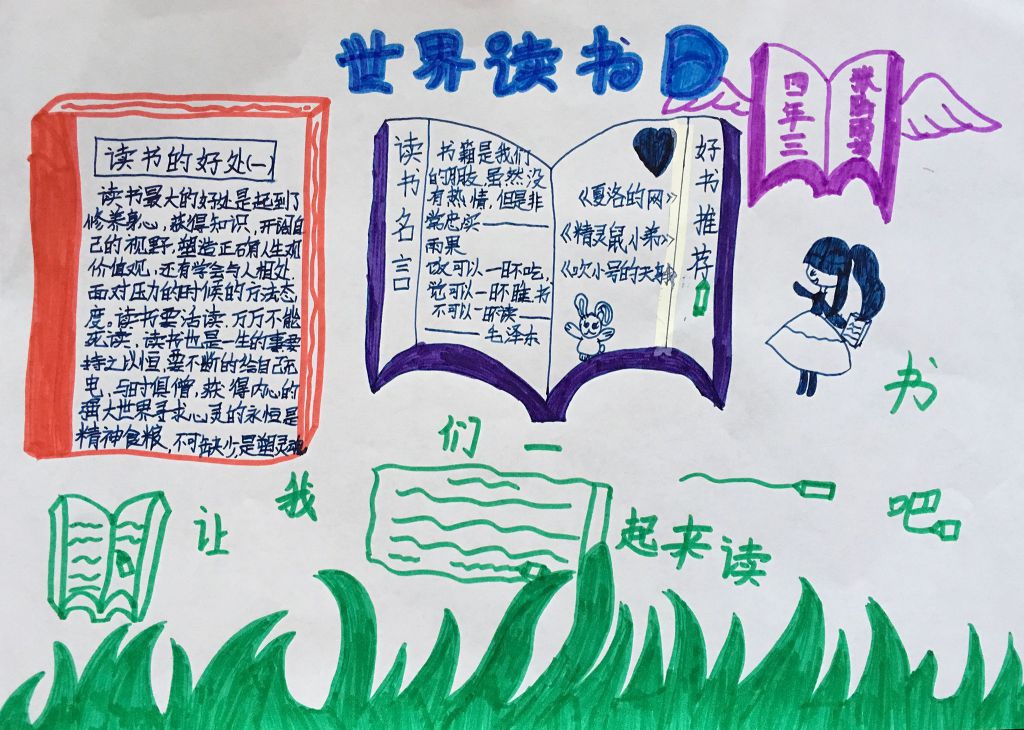 世界读书日
四年三
读书的好处(一)
读书最大的好处是起到了
修养身心，获得知识，开阔自
己的视野，塑造正确人生观
价值观，还有学会与人相处
面对压力的时候的方法态
度。读书要活读，万万不能
死读，读书也是一生的事要
持之以恒，要不断的给自己充
电，与时俱僧，获得内心的
强大世界寻求心灵的永恒是
精神食粮，不可缺少，是塑灵魂
读书名言
书籍是我们
的朋友，虽然没
有热情，但是非
常忠实——
雨果
饭可以一日不吃，
觉可以一日不睡，书
不可以一日不读——
——毛泽东
好书推荐
《夏洛的网》
《精灵鼠小弟》
《吹小号的天鹅》
让我们一起来读书吧